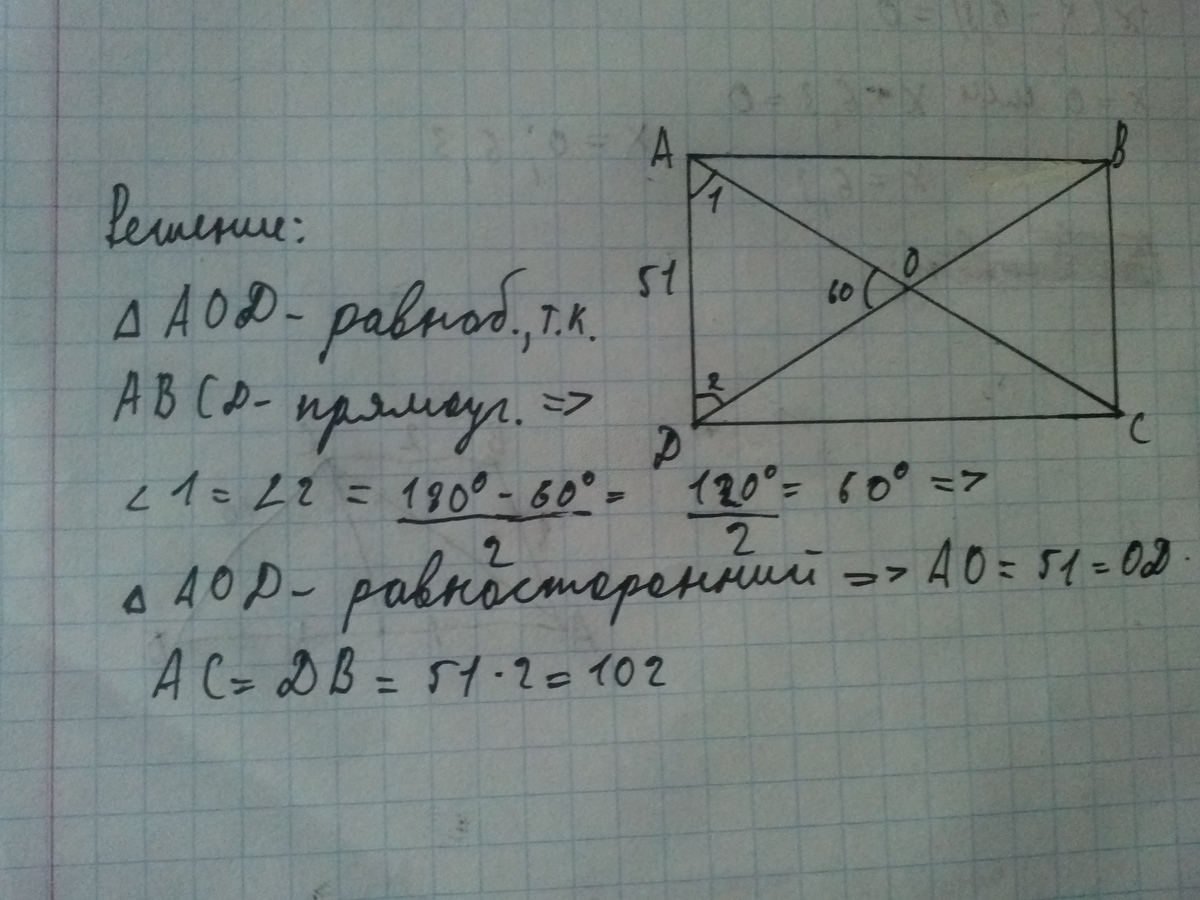 Решение:
Δ AOD - равноб., т.к.
ABCD - прямоуг. =>
∠1 = ∠2 = (180° - 60°)/2 = 120°/2 = 60° =>
Δ AOD - равносторонний => AO = 51 = OD.
AC = DB = 51 · 2 = 102
A
B
1
51
60
O
2
D
C